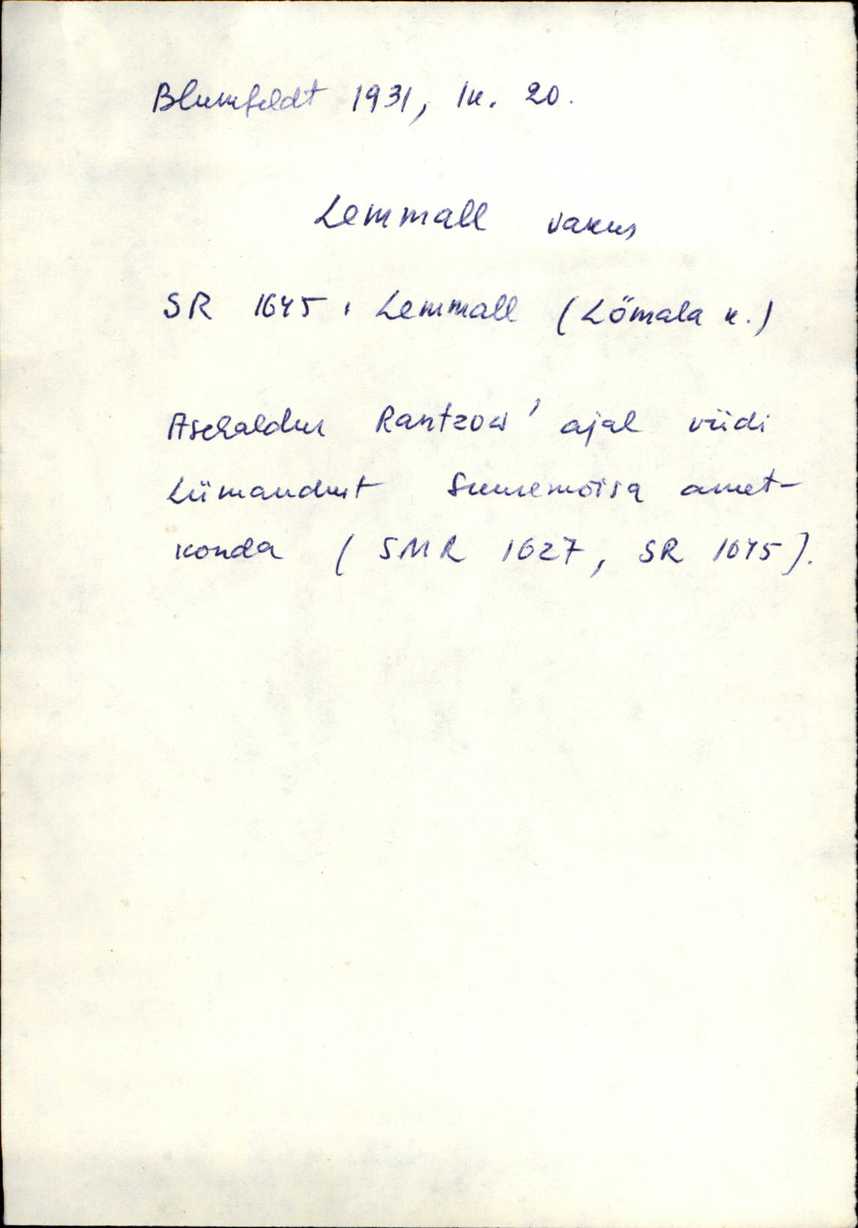 Blumfeldt 1931, lk. 20.
Lemmall vakus
SR 1645, Lemmall (Lõmala k.)
Rantzow' ajal viidi
Liimandust Suuremõisa amet-
konda (SMR 1627, SR 1645).